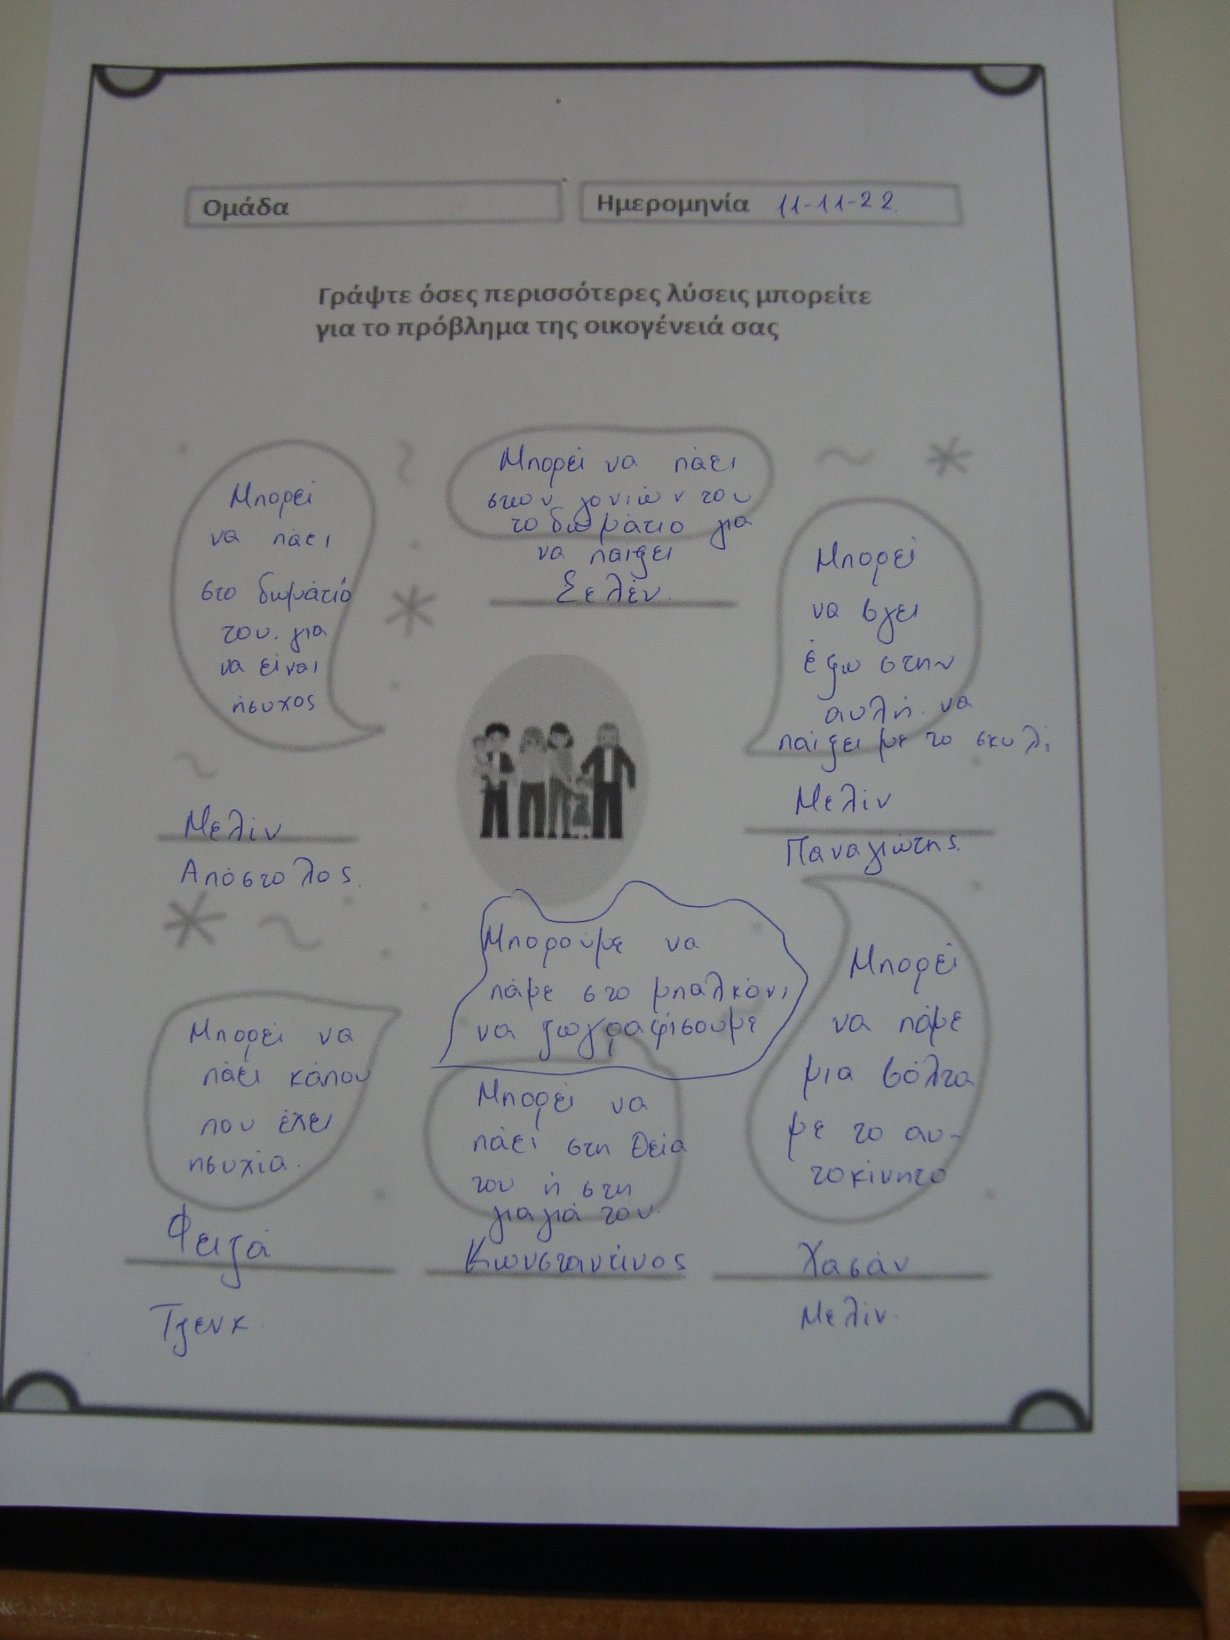 Ομάδα
Ημερομηνία 11-11-22
Γράψτε όσες περισσότερες λύσεις μπορείτε
για το πρόβλημα της οικογένειά σας
Μπορεί
να πάει
στο δωμάτιό
του. για
να είναι
ήσυχος
Μελίν
Απόστολος.
Μπορεί να πάει
στων γονιών του
το δωμάτιο για
να παίξει
Σελέν.
Μπορεί
να βγει
έξω στην
αυλή. να
παίξει με το σκυλί
Μελίν
Παναγιώτης.
Μπορούμε να
πάμε στο μπαλκόνι
να ζωγραφίσουμε
Μπορεί να
πάει κάπου
που έχει
ησυχία.
Φειζά
Τζενκ.
Μπορεί να
πάει στη θεία
του ή στη
γιαγιά του.
Κωνσταντίνος
Μπορεί
να πάμε
μια βόλτα
με το αυ-
τοκίνητο
Χασάν
Μελίν.